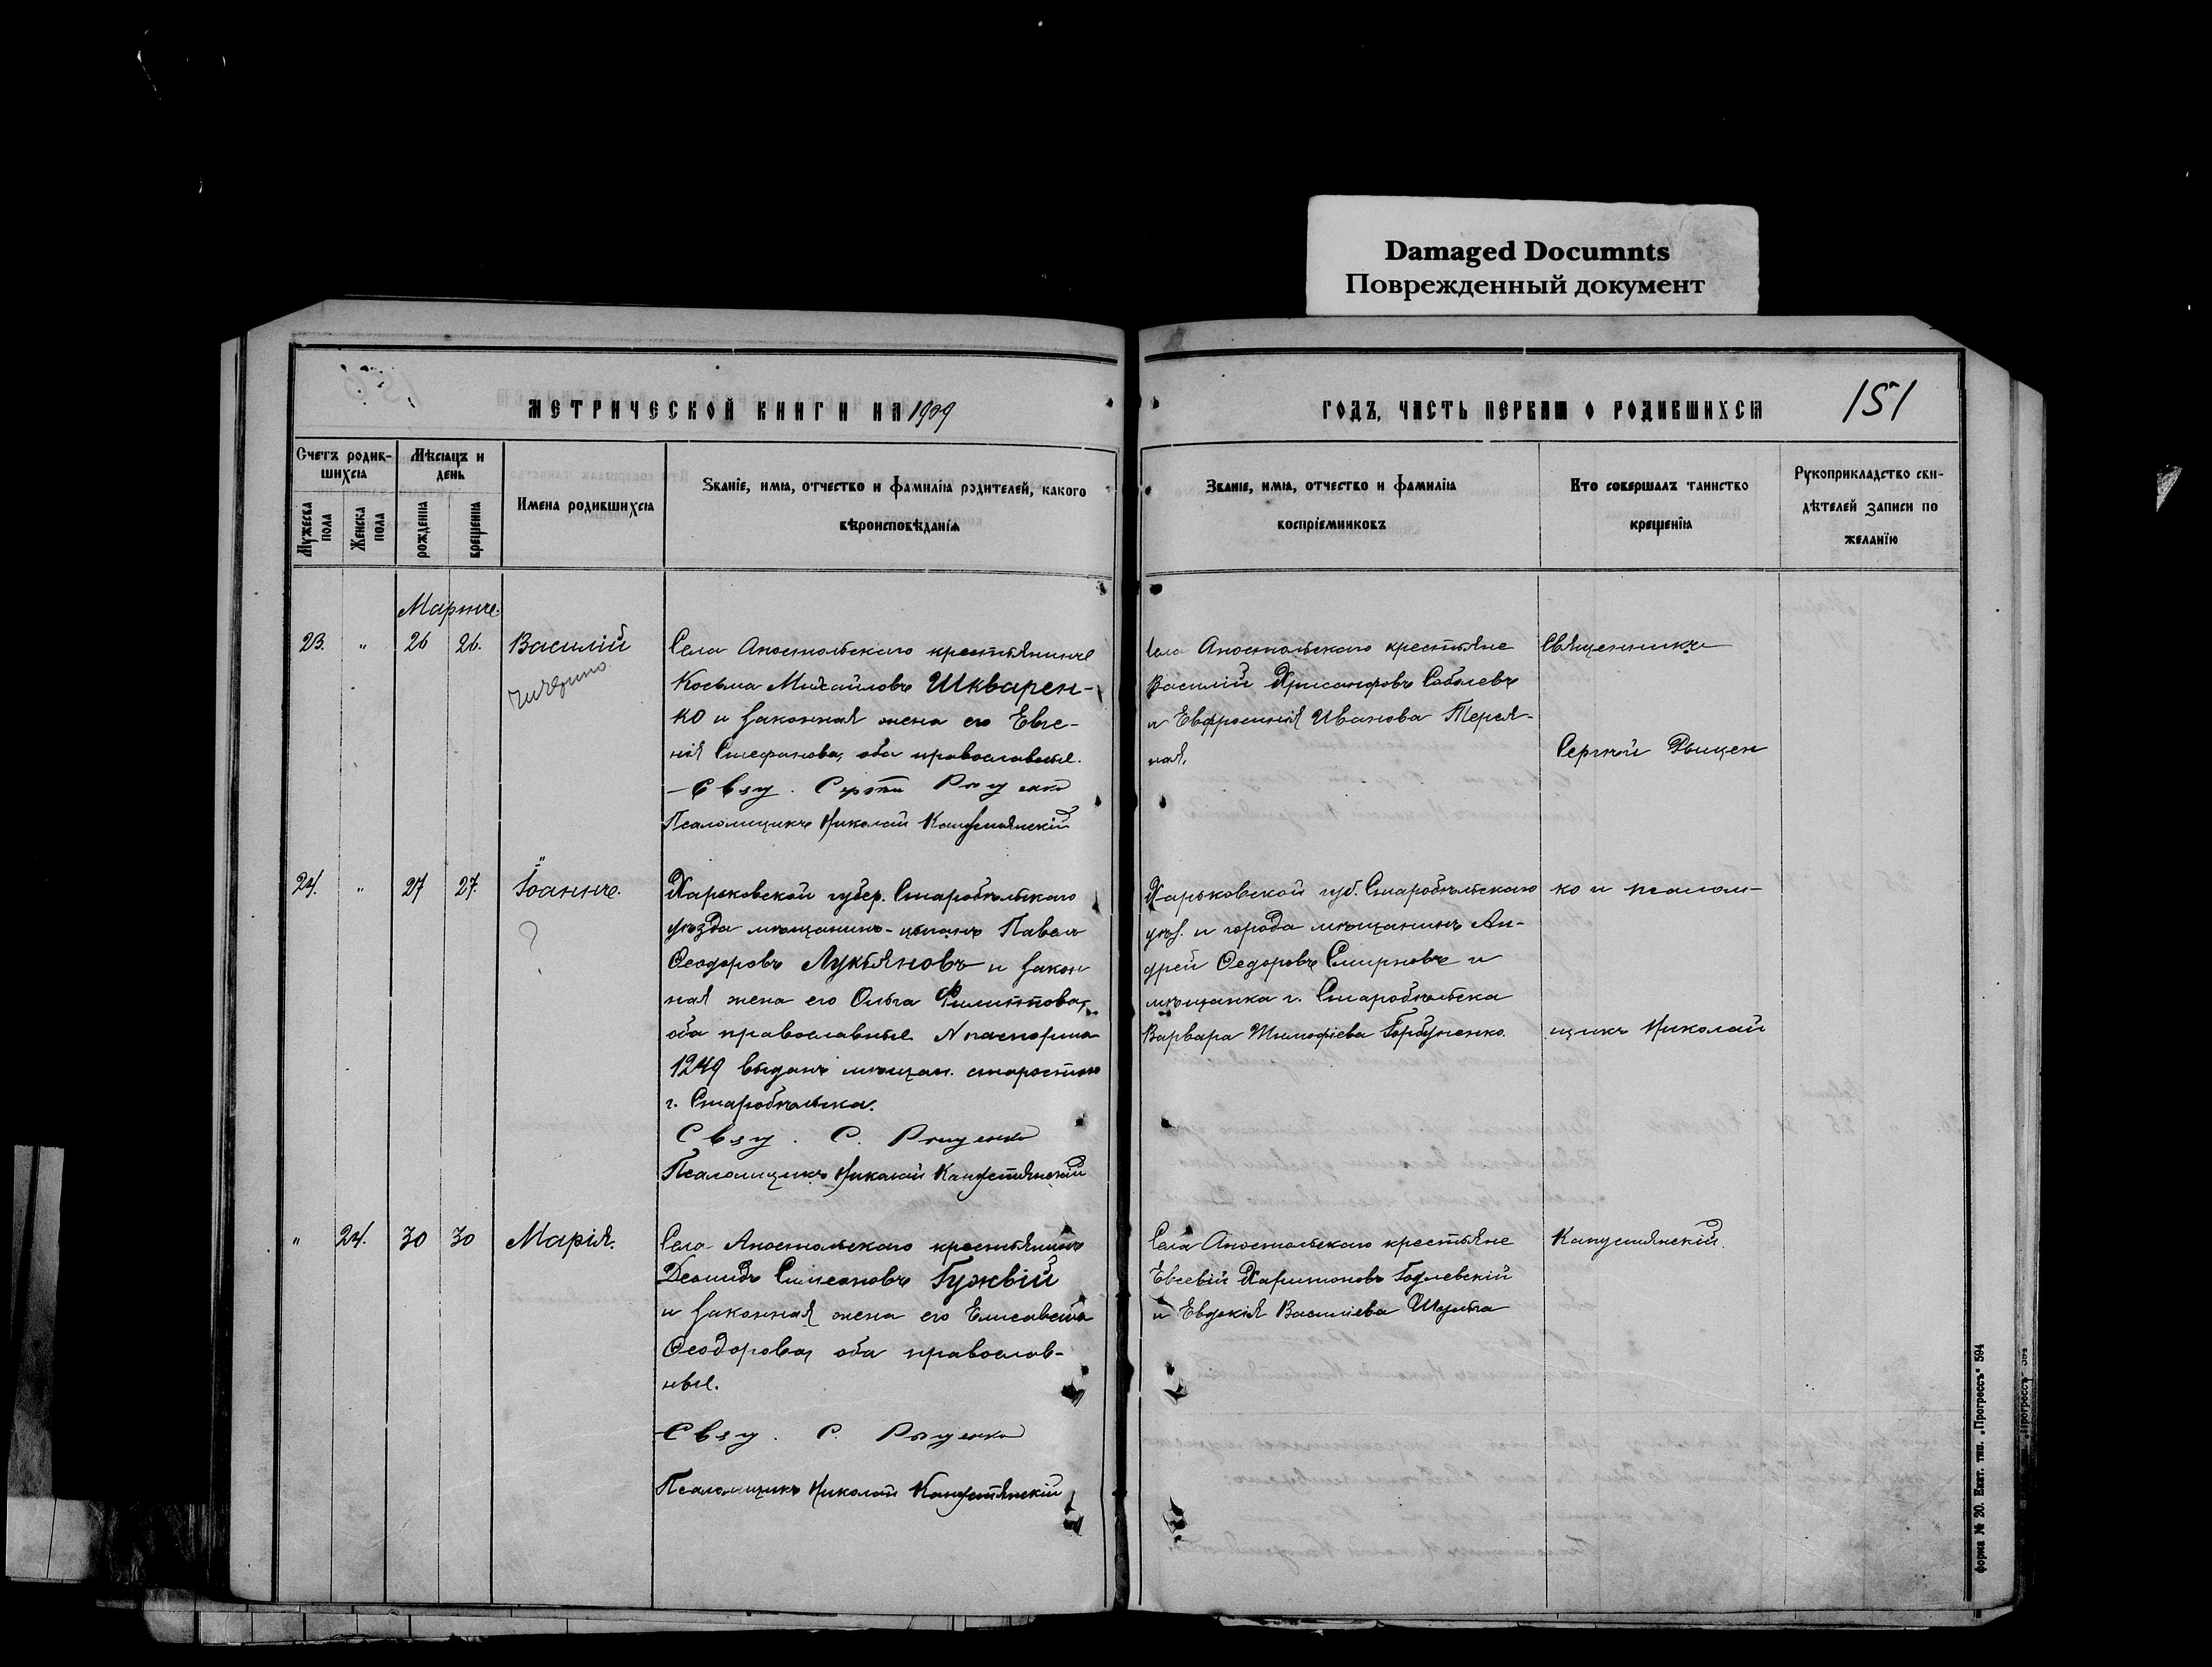 Damaged Documnts
Поврежденный документ
МЕТРИЧЕСКОЙ КНИГИ НА 1909
ГОДЪ, ЧАСТЬ ПЕРВАЯ О РОДИВШИХСЯ
151
Счетъ родив-
шихся
Мѣсяцъ и
день
Мужеска
пола
Женска
пола
рожденія
крещенія
Имена родившихся
Званіе, имя, отчество и фамилія родителей, какого
вѣроисповѣданія
Званіе, имя, отчество и фамилія
воспріемниковъ
Кто совершалъ таинство
крещенія
Рукоприкладство сви-
дѣтелей записи по
желанію
Мартъ.
23. " 26 26. Василій
Села Апостольскаго крестьянинъ
Косьма Михайловъ Шкварен-
ко и законная жена его Евге-
нія Стефанова, оба православные.
Свящ. Сергѣй
Псаломщикъ Николай Капустянскій
Села Апостольскаго крестьяне
Василій Хрисанфовъ Соболевъ
и Евфросинія Иванова
ная.
Священникъ
Сергѣй
24. " 27 27. Іоаннъ.
?
Харьковской губер. Старобѣльскаго
уѣзда мѣщанинъ-цыганъ Павелъ
Ѳеодоровъ Лукьяновъ и закон
ная жена его Ольга Филиппова,
оба православные N паспорта
1249 выданъ мѣщан. старостою
г. Старобѣльска.
Свящ. С.
Псаломщикъ Николай Капустянскій
Харьковской губ. Старобѣльскаго
уѣз. и города мѣщанинъ Ан-
дрей Ѳедоровъ Смирновъ и
мѣщанка г. Старобѣльска
Варвара Тимофіева Горбуненко.
ко и псалом-
щикъ Николай
" 24. 30 30 Марія.
Села Апостольскаго крестьянинъ
Леонидъ Симеоновъ Гужвій
и законная жена его Елисавета
Ѳеодорова, оба православ-
ные.
Свящ. С.
Псаломщикъ Николай Капустянскій
Села Апостольскаго крестьяне
Евсевій Харитоновъ Годлевскій
и Евдокія Василіева Шульга
Капустянскій.
форма № 20. Екат. тип. „Прогрессъ" 594